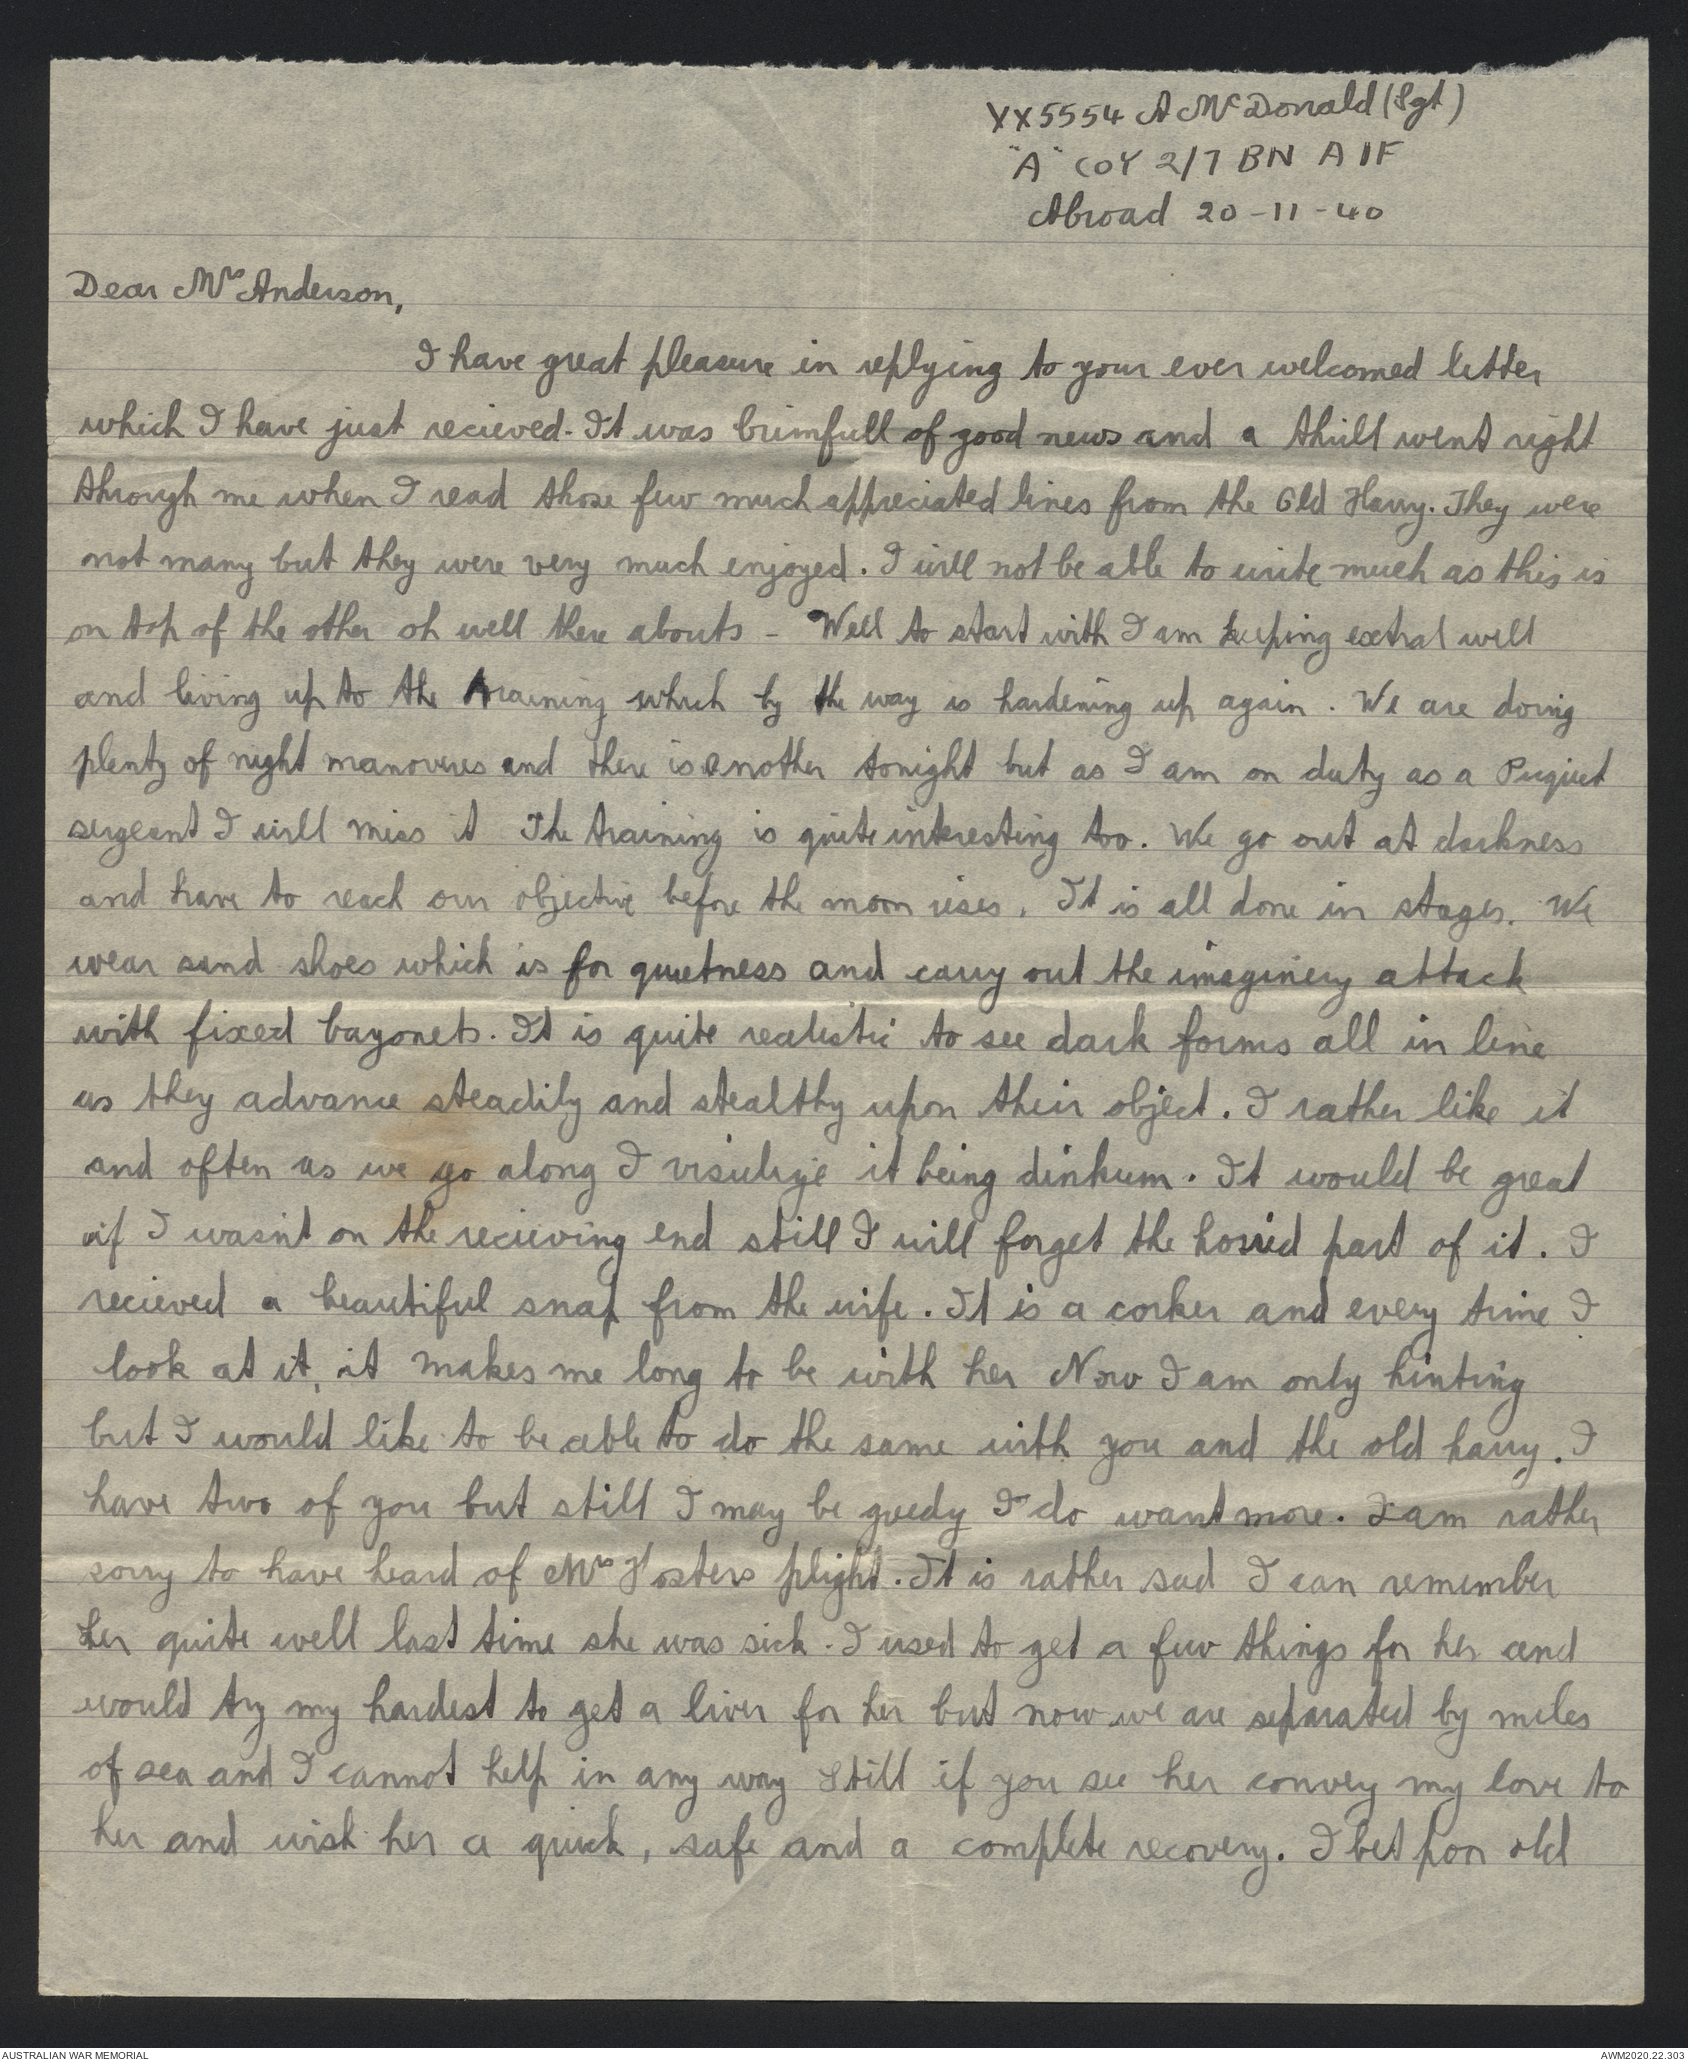 VX5554 A McDonald (Sgt)
"A" COY 2/7 BN AIF
Abroad 20-11-40
Dear Mrs Anderson,
I have great pleasure in replying to your ever welcomed letter
which I have just recieved. It was brimfull of good news and a thrill went right
through me when I read those few much appreciated lines from the Old Harry. They were
not many but they were very much enjoyed. I will not be able to write much as this is
on top of the other oh well there abouts - Well to start with I am keeping extral well
and living up to the training which by the way is hardening up again. We are doing
plenty of night manoveres and there is another tonight but as I am on duty as a Piquet
sergeant I will miss it The training is quite interesting too. We go out at darkness
and have to reach our objective before the moon rises. It is all done in stages. We
wear sand shoes which is for quietness and carry out the imaginery attack
with fixed bayonets. It is quite realistic to see dark forms all in line
as they advance steadily and stealthy upon their object. I rather like it
and often as we go along I visulige it being dinkum. It would be great
if I wasn't on the recieving end still I will forget the horrid part of it. I
recieved a beautiful snap from the wife. It is a corker and every time I
look at it, it makes me long to be with her Now I am only hinting
but I would like to be able to do the same with you and the old harry. I
have two of you but still I may be greedy I do want more. I am rather
sorry to have heard of Mrs Fosters plight. It is rather sad I can remember
her quite well last time she was sick. I used to get a few things for her and
would try my hardest to get a liver for her but now we are separated by miles
of sea and I cannot help in any way Still if you see her convey my love to
her and wish her a quick, safe and a complete recovery. I bet poor old
AUSTRALIAN WAR MEMORIAL
AWM2020.22.303